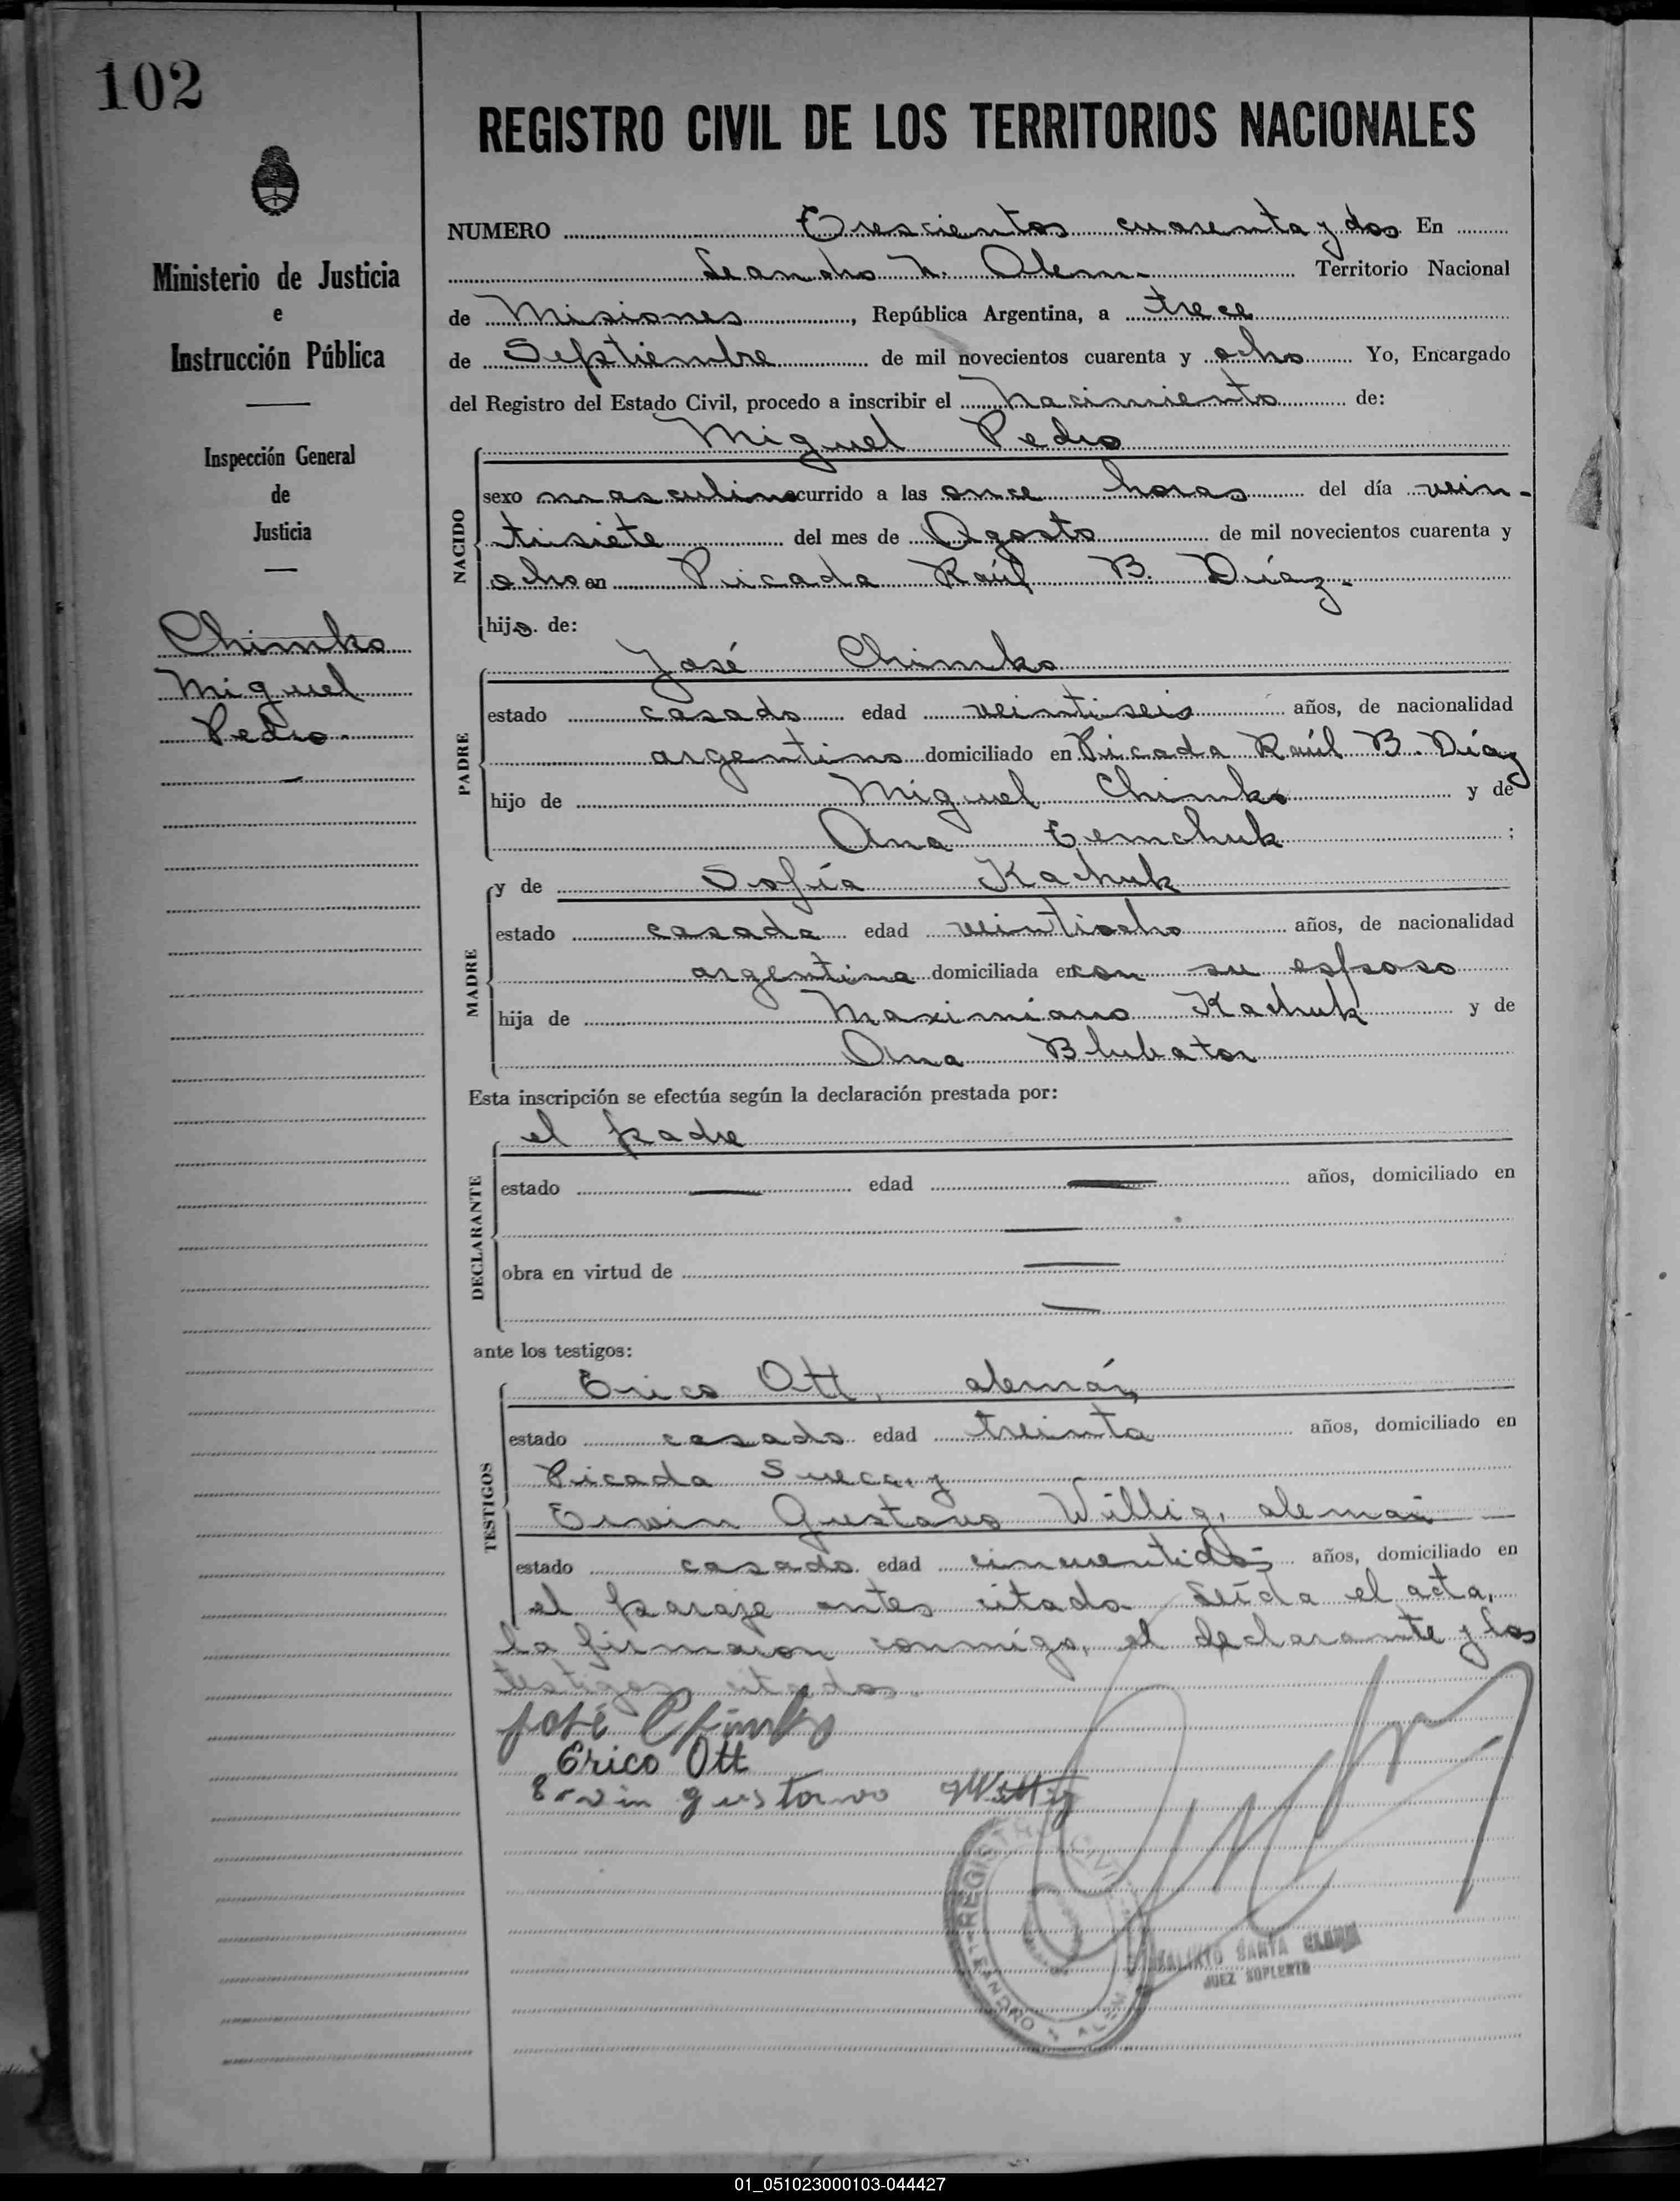 102
REGISTRO CIVIL DE LOS TERRITORIOS NACIONALES
Ministerio de Justicia
e
Instrucción Pública
Inspección General
de
Justicia
Chimko
Miguel
Pedro.
NUMERO Trescientos cuarenta y dos En
Leandro N. Alem. Territorio Nacional
de Misiones, República Argentina, a trece
de Septiembre de mil novecientos cuarenta y ocho Yo, Encargado
del Registro del Estado Civil, procedo a inscribir el nacimiento de:
Miguel Pedro
NACIDO
sexo masculino ocurrido a las once horas del día vein-
tisiete del mes de Agosto de mil novecientos cuarenta y
ocho en Picada Raúl B. Díaz.
hijo de:
José Chimko
PADRE
estado casado edad veintiseis años, de nacionalidad
argentino domiciliado en Picada Raúl B. Díaz
hijo de Miguel Chimko y de
Ana Temchuk ;
y de Sofía Kachuk
MADRE
estado casada edad veintiocho años, de nacionalidad
argentina domiciliada en con su esposo
hija de Maximiano Kachuk y de
Ana Blubator
Esta inscripción se efectúa según la declaración prestada por:
el padre
DECLARANTE
estado — edad — años, domiciliado en
obra en virtud de —
ante los testigos:
Erico Ott, alemán,
TESTIGOS
estado casado edad treinta años, domiciliado en
Picada Sueca, y
Erwin Gustavo Willig, alemán
estado casado edad cincuentidos años, domiciliado en
el paraje antes citado Leída el acta,
la firmaron conmigo, el declarante y los
testigos citados.
José Chimko
Erico Ott
Ervin gustavo Willig
REGISTRO CIVIL
LEANDRO N. ALEM
CALIXTO SANTA CLARA
JUEZ SUPLENTE
01_051023000103-044427